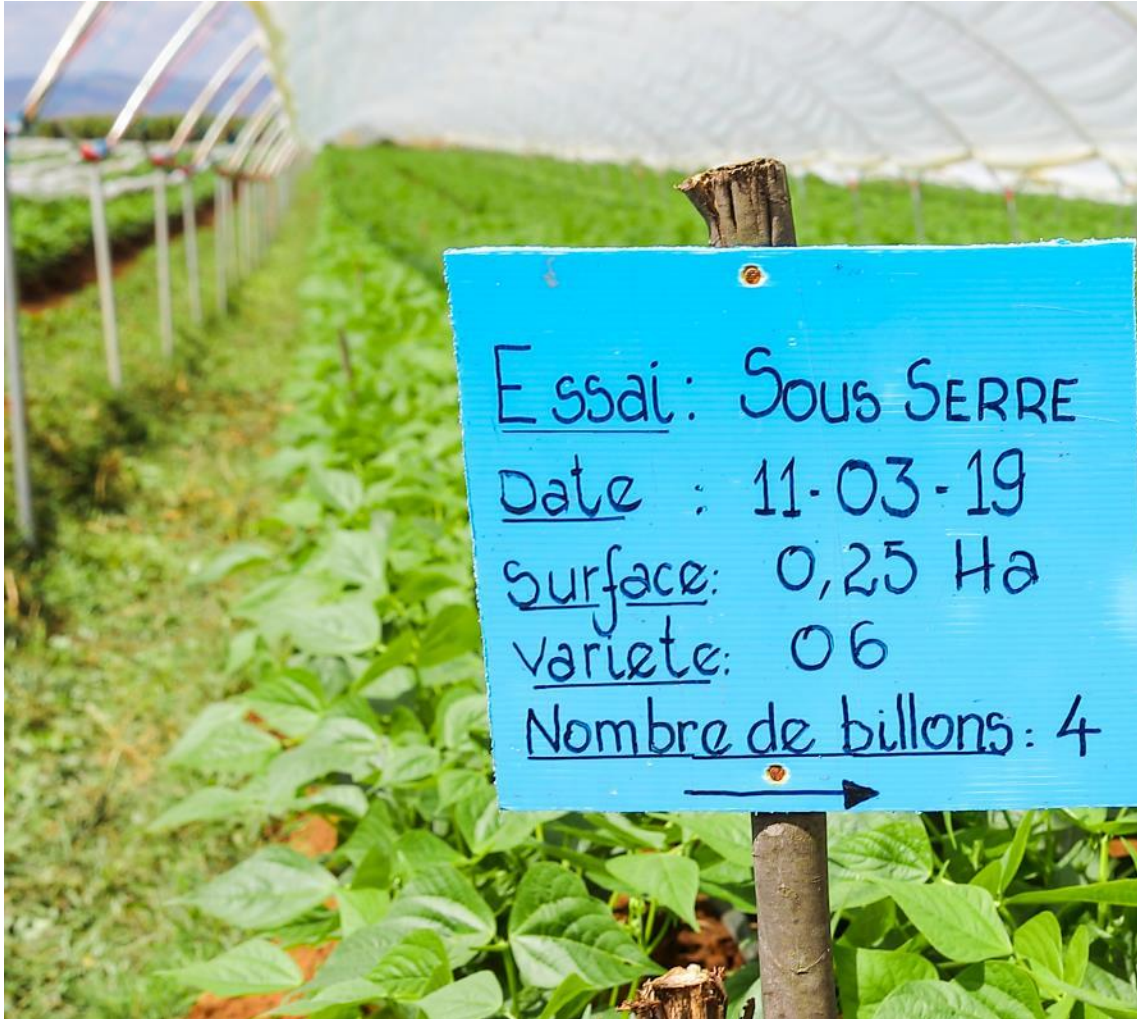 Essai: Sous SERRE
Date : 11-03-19
Surface: 0,25 Ha
Variete: 06
Nombre de billons: 4